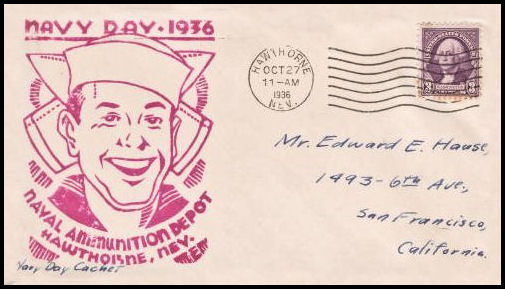 NAVY DAY · 1936
NAVAL AMMUNITION DEPOT
HAWTHORNE, NEV.
Navy Day Cachet
HAWTHORNE
OCT 27
11-AM
1936
NEV.
UNITED STATES POSTAGE
3 3
Mr. Edward E. Hause,
1493-6th Ave,
San Francisco,
California.